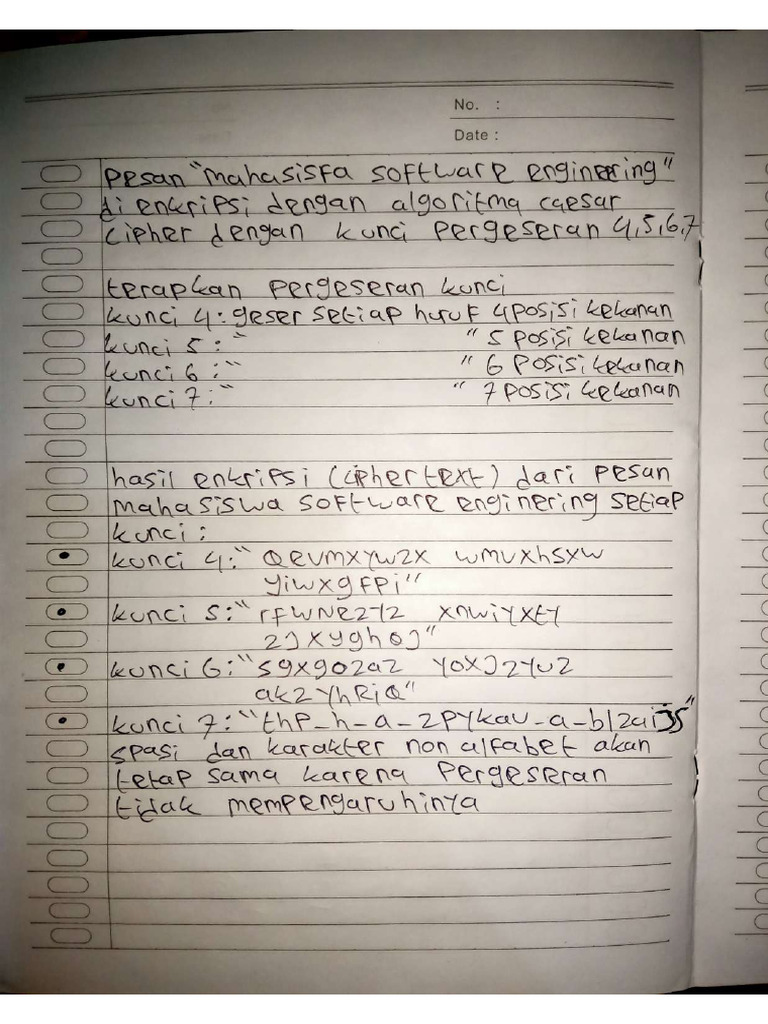 No. :
Date :
Pesan "mahasisfa software enginering"
di enkripsi dengan algoritma caesar
cipher dengan kunci pergeseran 4,5,6,7
terapkan pergeseran kunci
kunci 4: geser setiap huruf 4 posisi kekanan
kunci 5 : " " 5 posisi kekanan
kunci 6 : " " 6 posisi kekanan
kunci 7 : " " 7 posisi kekanan
hasil enkripsi (ciphertext) dari pesan
mahasiswa software enginering setiap
kunci :
kunci 4: " Qevmxyw2x wmvxhsxw
yiwxgfpi"
kunci 5 : " rfwNe2y2 xnwiyxty
2JXyghoJ"
kunci 6 : "sgxgo2a2 yoxJ2yu2
ak2yhRiQ"
kunci 7 : "thp_h_a_2pykau_a_bl2aiJS"
spasi dan karakter non alfabet akan
tetap sama karena pergeseran
tidak mempengaruhinya